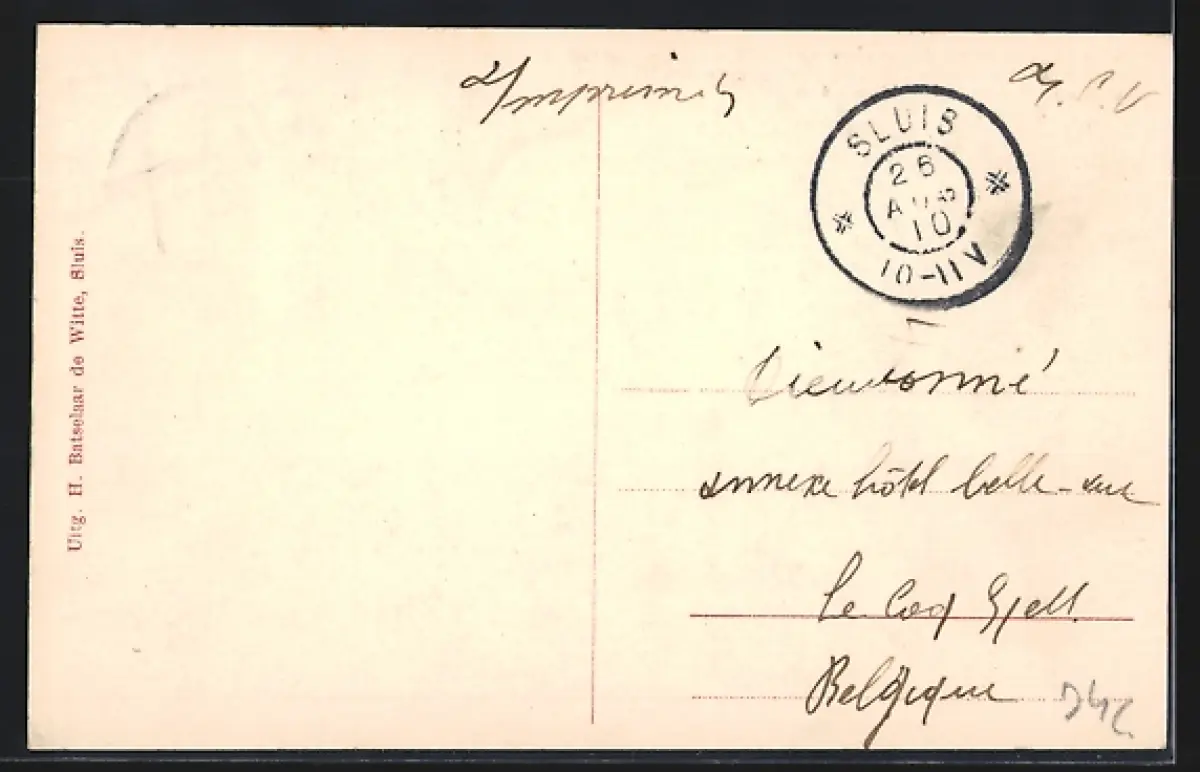 Imprimés
SLUIS
26
AUG
10
10-11V
Uitg. H. Batselaar de Witte, Sluis.
Dieudonné
annexe hôtel belle-vue
Le Coq
Belgique